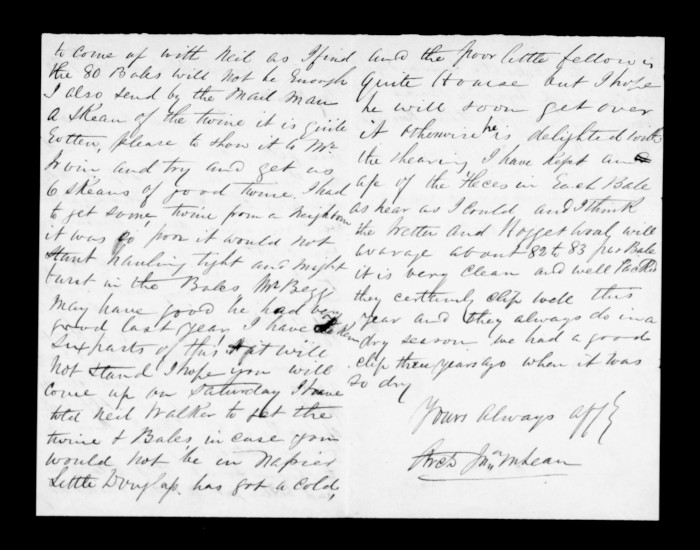 to come up with Neil as I find
the 80 Bales will not be Enough
I also send by the Mail Man
a Skean of the twine it is quite
Rotten, please to show it to Mr
Irwin and try and get us
6 Skeans of good twine. I had
to get some twine from a Neighbour
it was so poor it would not
stand hauling tight and might
burst in the Bales Mr Begg
may have good he had very
good last year I have
Six parts of this & it will
Not Stand I hope you will
come up on Saturday I have
told Neil Walker to get the
twine & Bales, in case you
would not be in Napier
Little Douglas. has got a cold,
and the poor little fellow is
quite Hoarse but I hope
he will soon get over
it otherwise he is delighted with
the shearing I have kept an
a/c of the Fleces in Each Bale
as near as I could and I think
the Wether and Hogget wool will
avarage about 82 to 83 per Bale
it is very clean and well Packed
they certainly clip well this
year and they always do in a
dry season we had a good
clip three years ago when it was
so dry
Yours Always affy
Archd Jno McLean